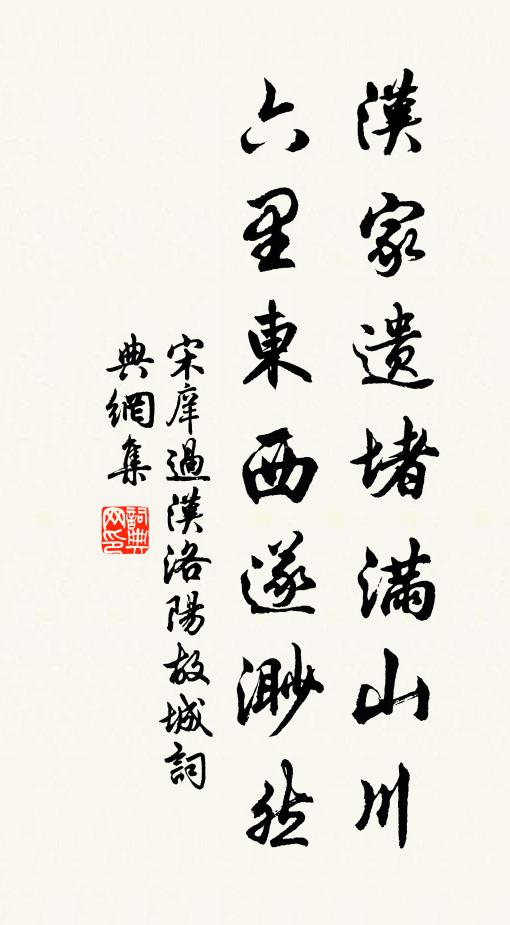 漢家遺堵滿山川
六里東西遂渺然
宋庠過漢洛陽故城詞
典網集
詞典網印